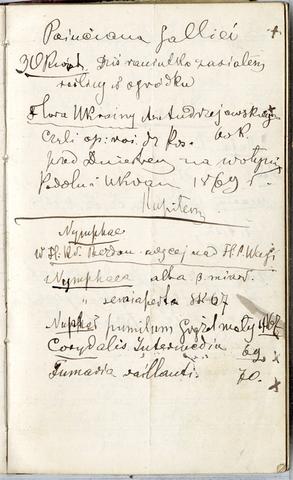 Poinciana Gallieś +
30 Kwiet. Dziś raniutko zasiałem
rośliny w ogródku
Flora Ukrainy Ant. Andrzejowskiego
czyli op: roś. dz. ros.
przed Dniestrem na Wołyniu
Podolu i Ukrain 1869 r.
kupiłem
Nymphae
nad
Nymphaea alba β. minor.
" semiaperta 8 67
Nuphar pumilum Grążel mały 467
Corydalis Intermedia 69. x
Fumaria vaillanti. 70. x